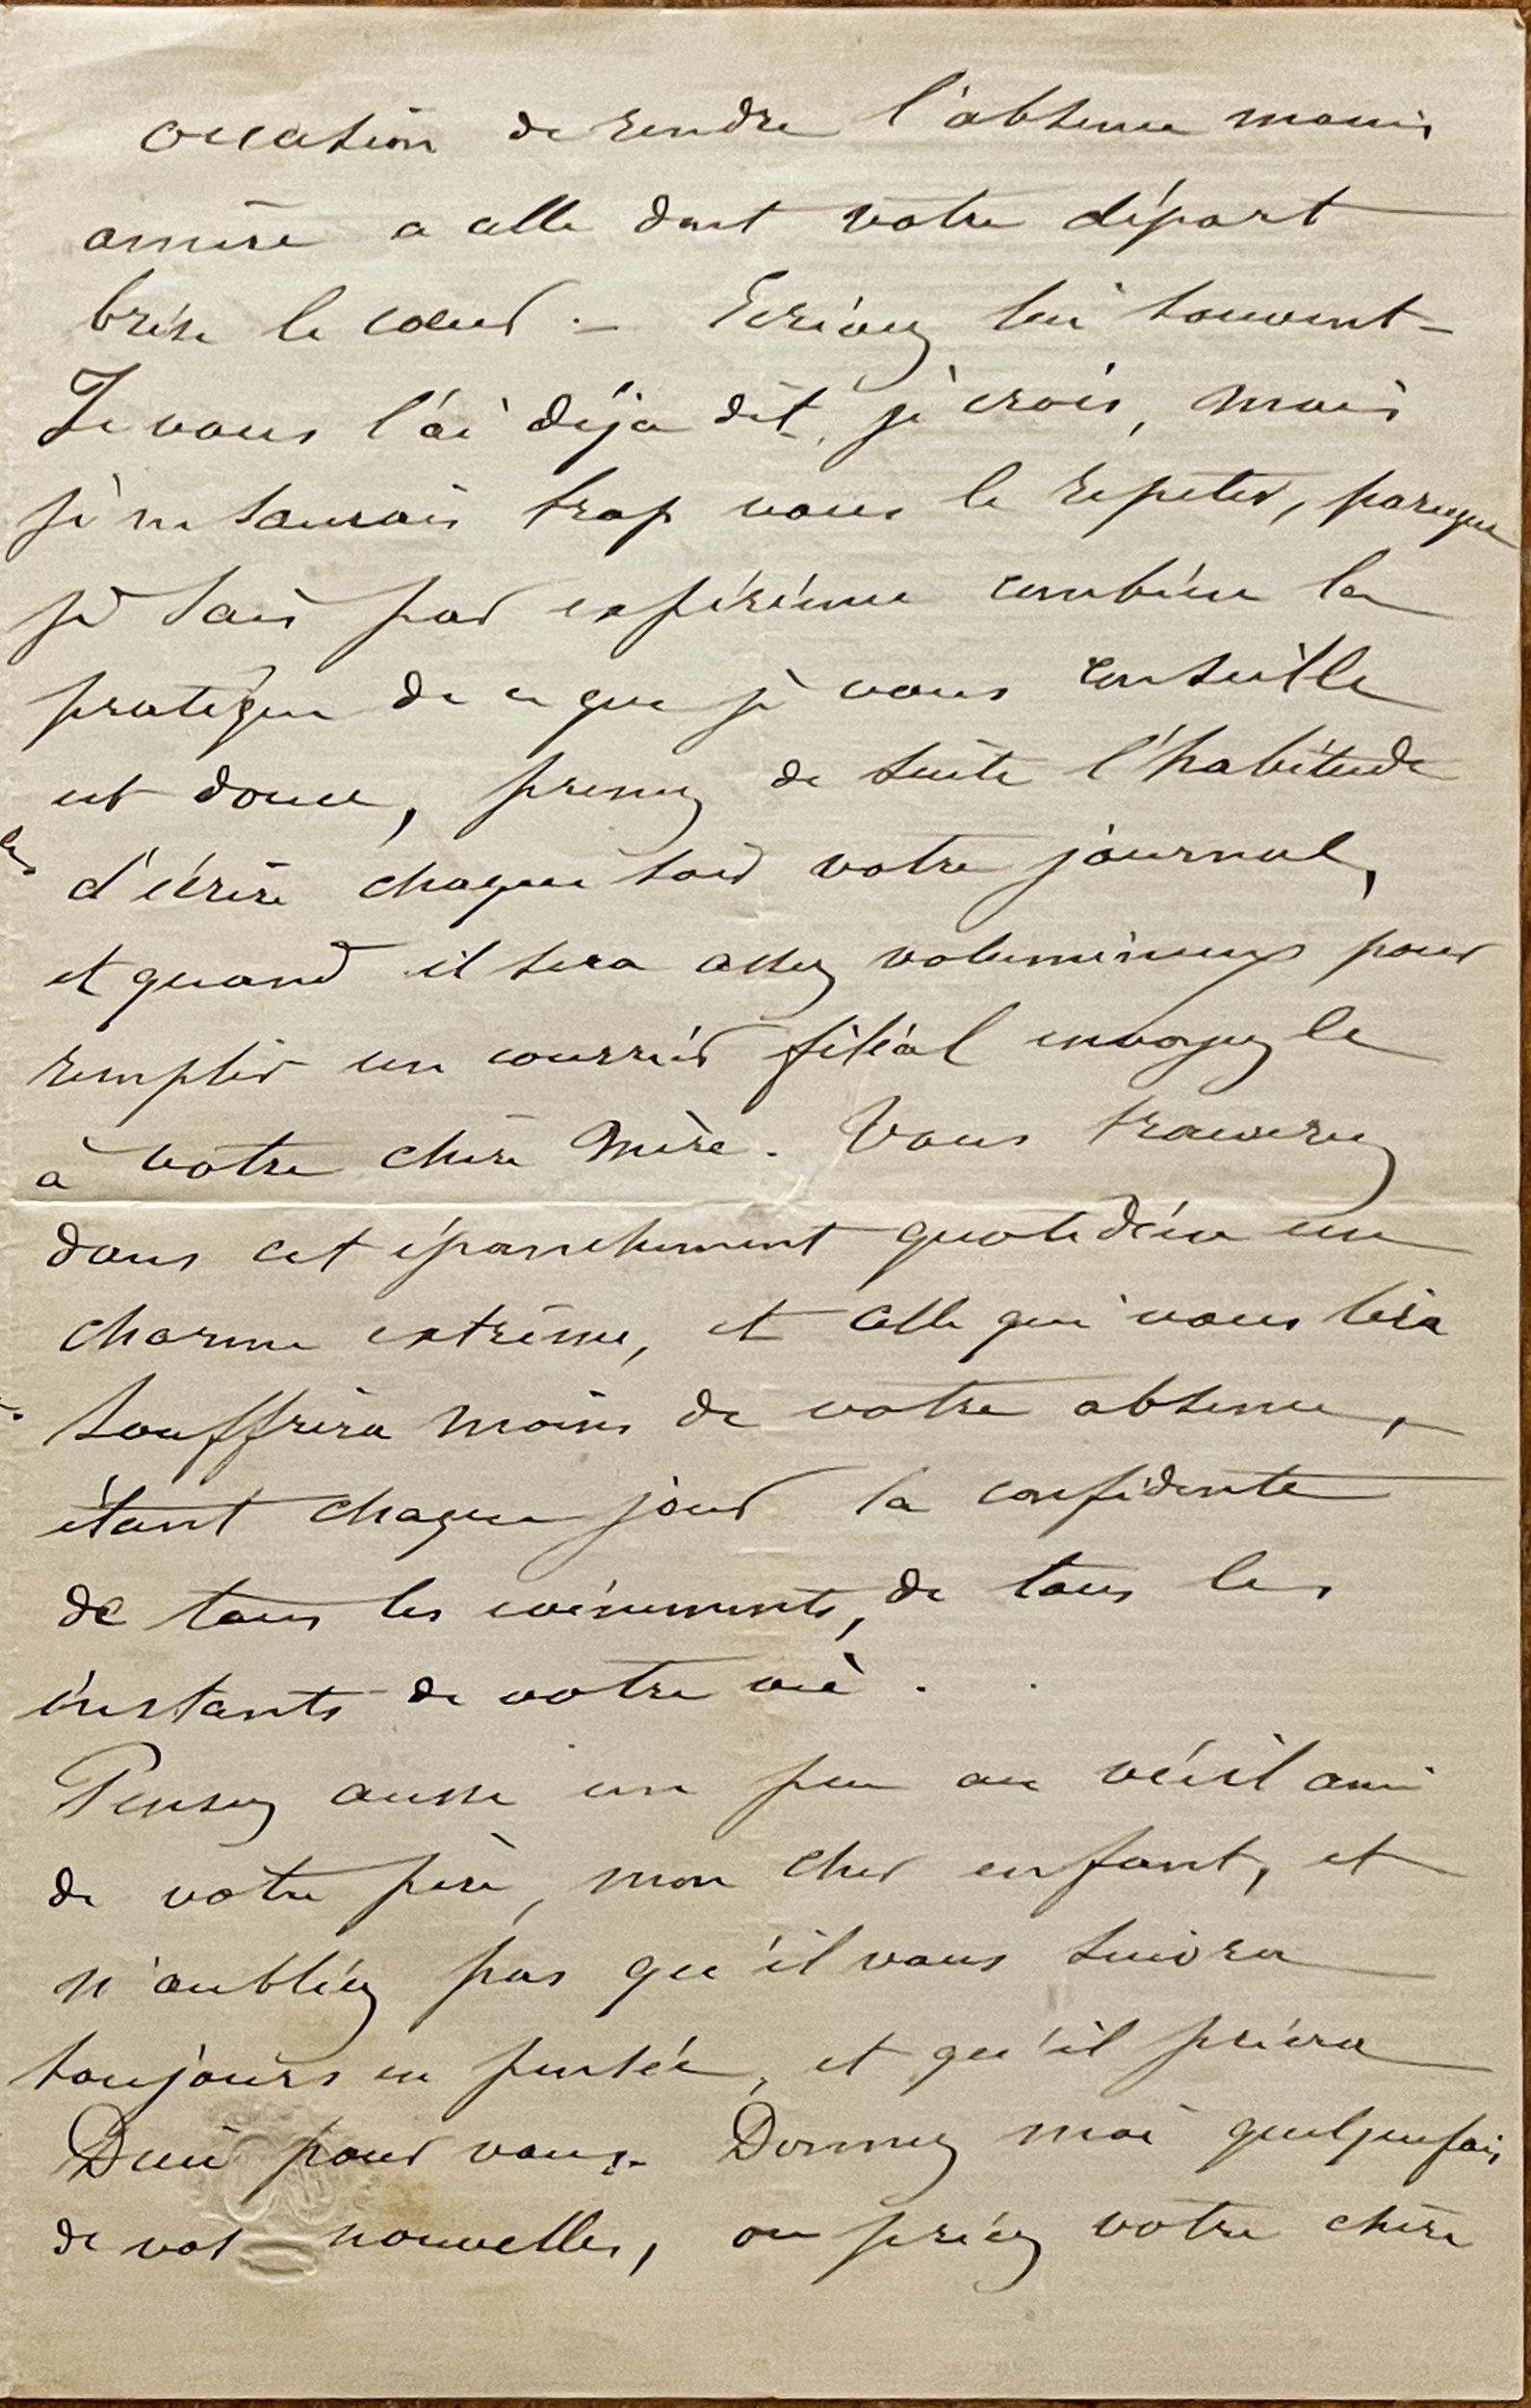 occasion de rendre l'absence moins
amère a celle dont votre départ
brise le cœur. – Ecrivez lui souvent –
Je vous l'ai déja dit, je crois, mais
je ne saurais trop vous le repeter, parceque
je sais par expérience combien la
pratique de ce que je vous conseille
est douce, prenez de suite l'habitude
d'écrire chaque soir votre journal,
et quand il sera assez volumineux pour
remplir un courrier filial envoyez le
à votre chère mère. Vous trouverez
dans cet épanchement quotidien un
charme extrême, et celle qui vous lira
souffrira moins de votre absence,
étant chaque jour la confidente
de tous les évènements, de tous les
instants de votre vie.
Pensez aussi un peu au vieil ami
de votre père, mon cher enfant, et
n'oubliez pas qu'il vous suivra
toujours en pensée, et qu'il priera
Dieu pour vous. Donnez moi quelquefois
de vos nouvelles, ou priez votre chère